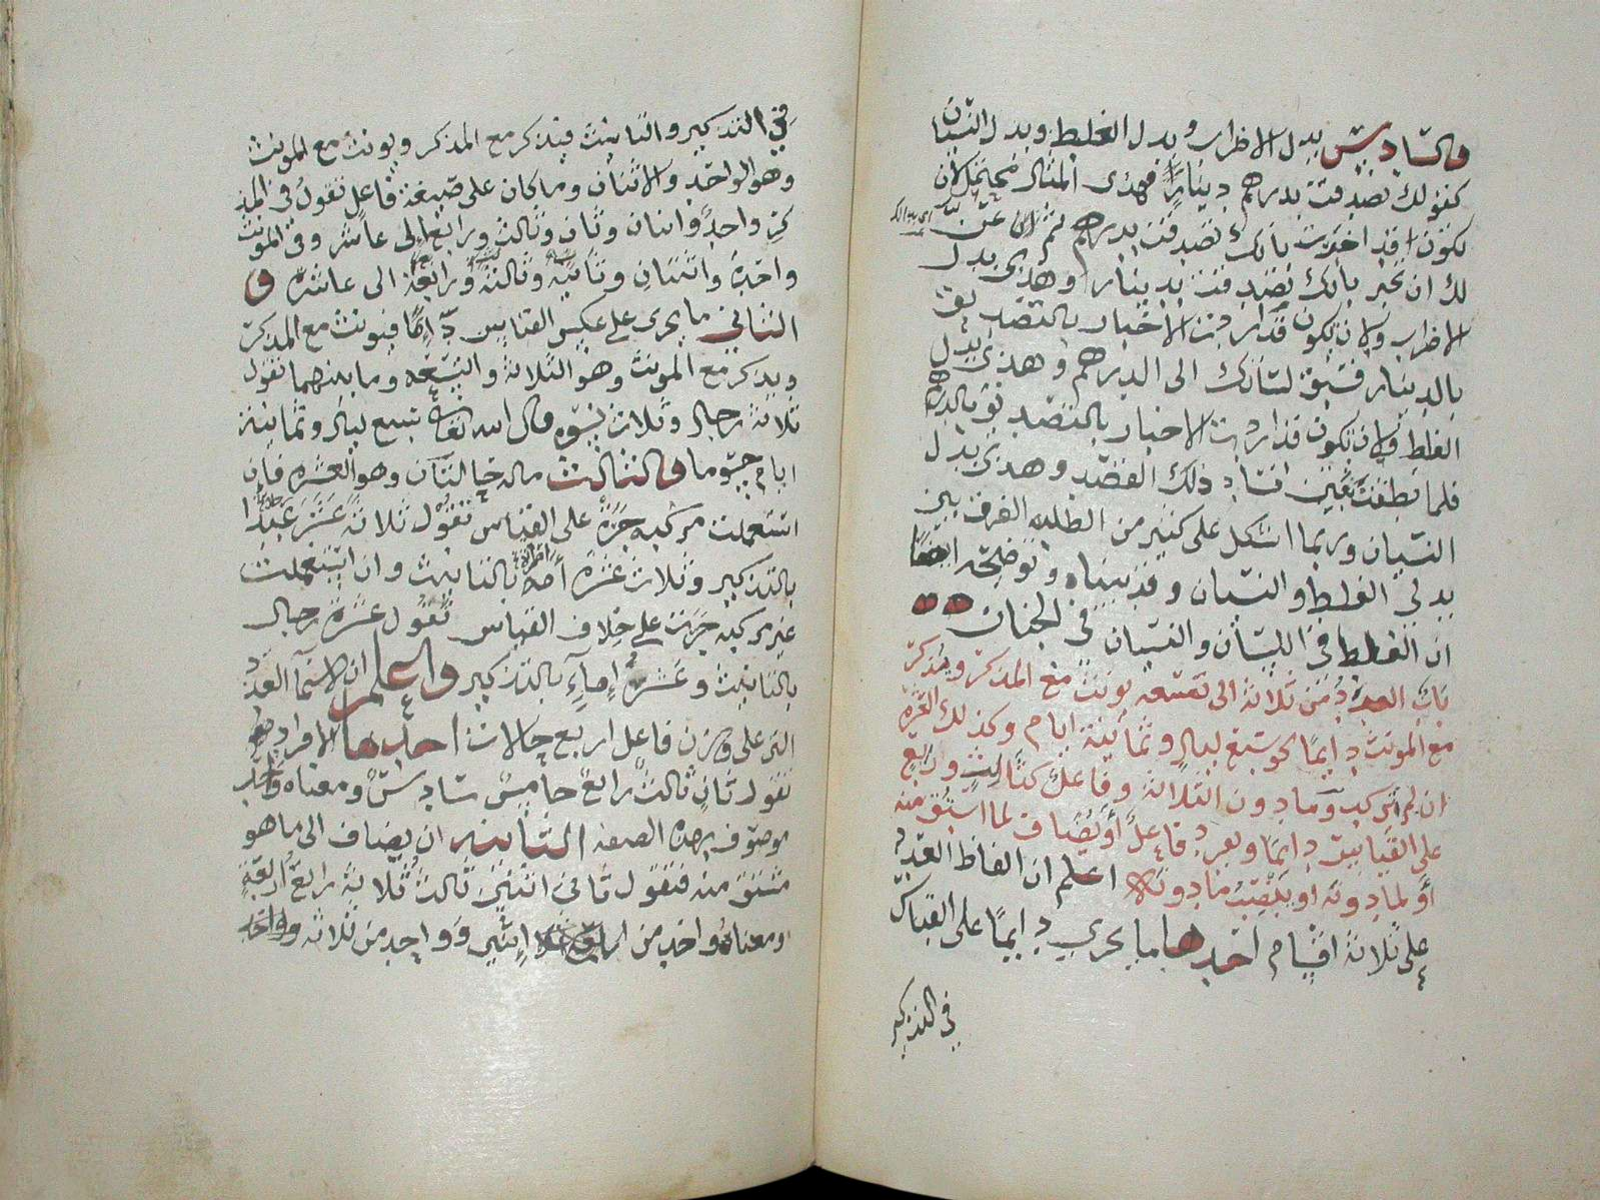 والسادس بدل الاضراب وبدل الغلط وبدل النسيان
كقولك تصدقت بدرهم دينار فهذا المثال محتمل لان
تكون قد اخبرت بانك تصدقت بدرهم ثم عن
لك ان تخبر بانك تصدقت بدينار وهذا بدل
الاضراب ولان تكون قد اردت الاخبار بالتصدق
بالدينار فسبق لسانك الى الدرهم وهذا بدل
الغلط ولان تكون قد اردت الاخبار بالتصدق بالدرهم
فلما نطقت تبين فساد ذلك القصد وهذا بدل
النسيان وربما اشكل على كثير من الطلبة الفرق بين
بدلي الغلط والنسيان وقد بيناه وتوضيحه ايضا
ان الغلط في اللسان والنسيان في الجنان
باب العدد من ثلاثة الى تسعه يونث مع المذكر ويذكر
مع المونث دايما نحو سبع ليال وثمانية ايام وكذلك العشرة
ان لم تركب وما دون الثلاثة وفاعل كثالث ورابع
على القياس دايما ويفرد فاعل أو يضاف لما اشتق منه
أو لما دونه او ينصب ما دونه اعلم ان الفاظ العدد
على ثلاثة اقسام احدها ما يجري دايما على القياس
في التذكير
في التذكير والتانيث فيذكر مع المذكر ويونث مع المونث
وهو الواحد والاثنان وما كان على صيغة فاعل تقول في المذ
كر واحد واثنان وثان وثالث ورابع الى عاشر وفي المونث
واحدة واثنتان وثانية وثالثة ورابعة الى عاشرة و
الثاني ما يجرى على عكس القياس دايما فيونث مع المذكر
ويذكر مع المونث وهو الثلاثة والتسعه وما بينهما تقول
ثلاثة رجال وثلاث نسوه قال الله تعالى سبع ليال وثمانية
ايام حسوما والثالث ماله حالتان وهو العشره فان
استعملت مركبه جرت على القياس تقول ثلاثة عشر عبدا
بالتذكير وثلاث عشرة أمة بالتانيث وان استعملت
غير مركبه جرت على خلاف القياس تقول عشرة رجال
بالتانيث وعشر إماء بالتذكير واعلم ان لاسما العدد
التى على وزن فاعل اربع حالات احداها الافراد
تقول ثان ثالث رابع خامس سادس ومعناه واحد
موصوف بهذه الصفه الثانيه ان يضاف الى ما هو
مشتق منه فتقول ثانى اثنين ثالث ثلاثة رابع أربعة
ومعناه واحد من اثنين وواحد من ثلاثه وواحد